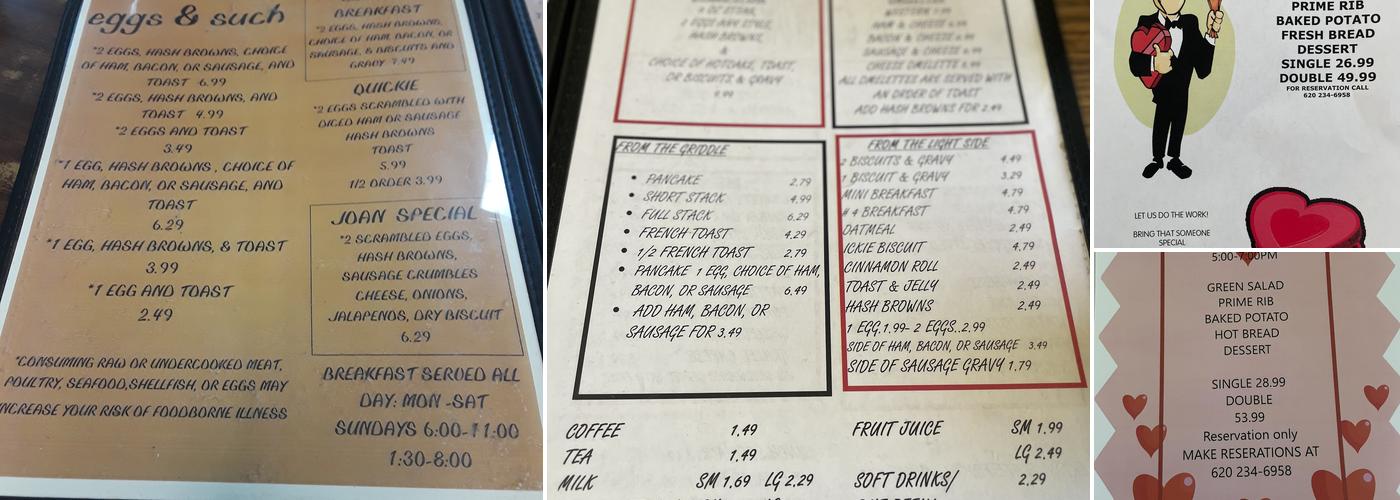 eggs & such
*2 EGGS, HASH BROWNS, CHOICE
OF HAM, BACON, OR SAUSAGE, AND
TOAST 6.99
*2 EGGS, HASH BROWNS, AND
TOAST 4.99
*2 EGGS AND TOAST
3.49
*1 EGG, HASH BROWNS , CHOICE OF
HAM, BACON, OR SAUSAGE, AND
TOAST
6.29
*1 EGG, HASH BROWNS, & TOAST
3.99
*1 EGG AND TOAST
2.49
*CONSUMING RAW OR UNDERCOOKED MEAT,
POULTRY, SEAFOOD,SHELLFISH, OR EGGS MAY
INCREASE YOUR RISK OF FOODBORNE ILLNESS
BREAKFAST
*2 EGGS, HASH BROWNS,
CHOICE OF HAM, BACON, OR
SAUSAGE, & BISCUITS AND
GRAVY 7.49
QUICKIE
*2 EGGS SCRAMBLED WITH
DICED HAM OR SAUSAGE
HASH BROWNS
TOAST
5.99
1/2 ORDER 3.99
JOAN SPECIAL
*2 SCRAMBLED EGGS,
HASH BROWNS,
SAUSAGE CRUMBLES
CHEESE, ONIONS,
JALAPENOS, DRY BISCUIT
6.29
BREAKFAST SERVED ALL
DAY: MON -SAT
SUNDAYS 6:00-11:00
1:30-8:00
2 EGGS ANY STYLE,
HASH BROWNS,
&
CHOICE OF HOTCAKE, TOAST,
OR BISCUITS & GRAVY
9.99
HAM & CHEESE
BACON & CHEESE
SAUSAGE & CHEESE
CHEESE OMELETTE
ALL OMELETTES ARE SERVED WITH
AN ORDER OF TOAST
ADD HASH BROWNS FOR 2.49
FROM THE GRIDDLE
• PANCAKE 2.79
• SHORT STACK 4.99
• FULL STACK 6.29
• FRENCH TOAST 4.29
• 1/2 FRENCH TOAST 2.79
• PANCAKE 1 EGG, CHOICE OF HAM,
BACON, OR SAUSAGE 6.49
• ADD HAM, BACON, OR
SAUSAGE FOR 3.49
FROM THE LIGHT SIDE
2 BISCUITS & GRAVY 4.49
1 BISCUIT & GRAVY 3.29
MINI BREAKFAST 4.79
# 4 BREAKFAST 4.79
OATMEAL 2.49
ICKIE BISCUIT 4.79
CINNAMON ROLL 2.49
TOAST & JELLY 2.49
HASH BROWNS 2.49
1 EGG.1.99- 2 EGGS..2.99
SIDE OF HAM, BACON, OR SAUSAGE 3.49
SIDE OF SAUSAGE GRAVY 1.79
COFFEE 1.49
TEA 1.49
MILK SM 1.69 LG 2.29
FRUIT JUICE SM 1.99
LG 2.49
SOFT DRINKS/ 2.29
PRIME RIB
BAKED POTATO
FRESH BREAD
DESSERT
SINGLE 26.99
DOUBLE 49.99
FOR RESERVATION CALL
620 234-6958
LET US DO THE WORK!
BRING THAT SOMEONE
SPECIAL
5:00-7:00PM
GREEN SALAD
PRIME RIB
BAKED POTATO
HOT BREAD
DESSERT
SINGLE 28.99
DOUBLE
53.99
Reservation only
MAKE RESERATIONS AT
620 234-6958